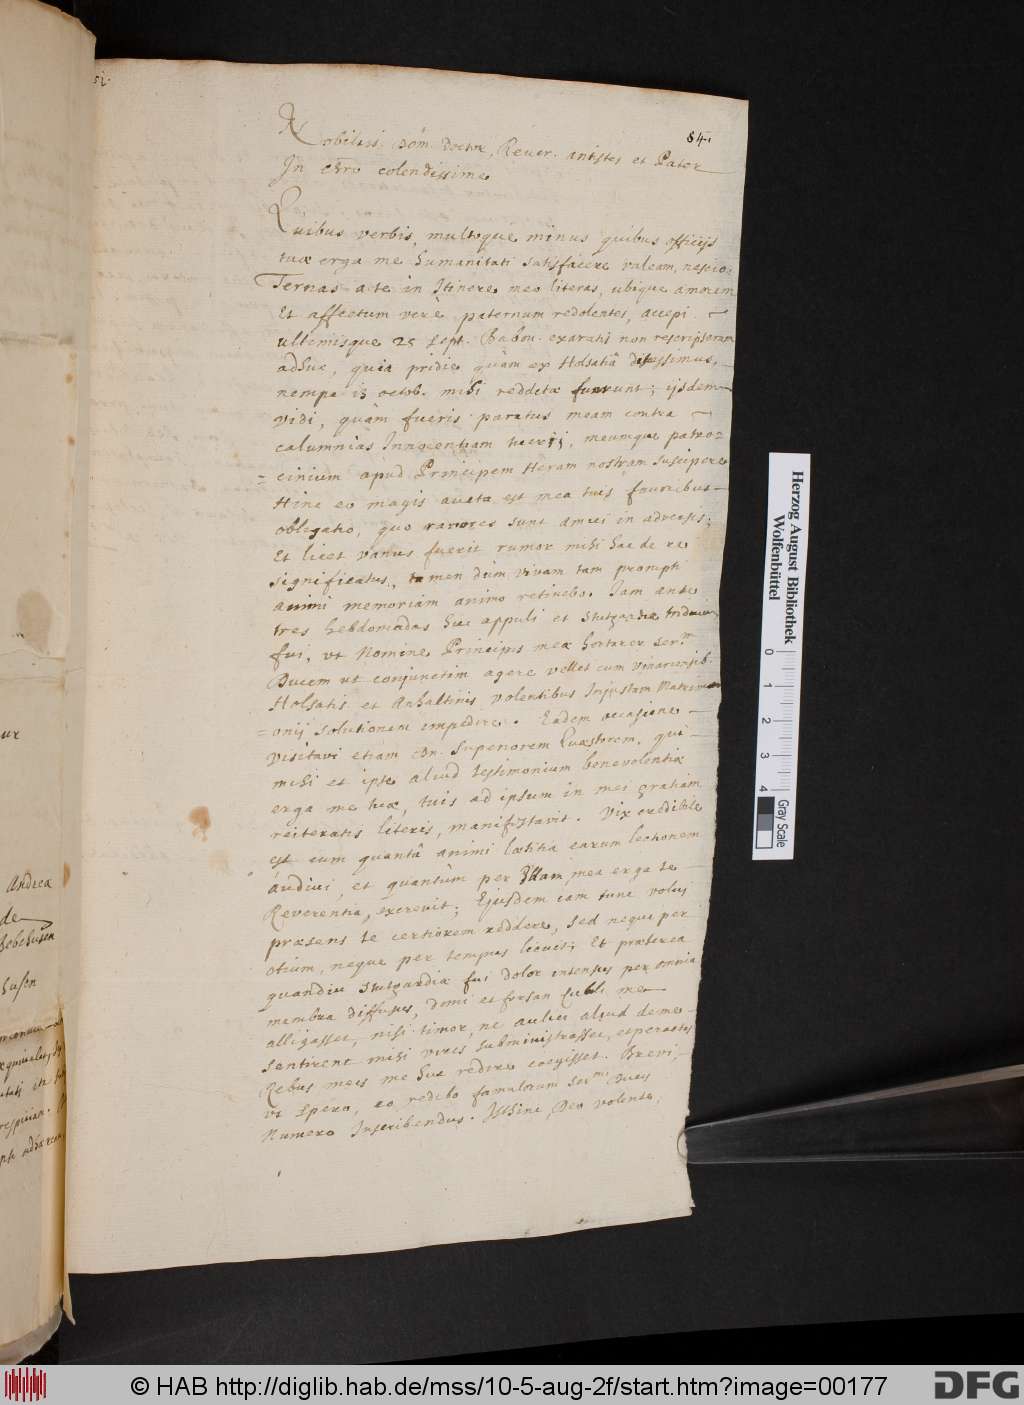 84.
Nobiliss. Dom. Doctor, Rever. antistes et Pater
In Chro colendissime
Quibus verbis, multoque minus quibus officijs
tuæ erga me humanitati satisfacere valeam, nescio.
Ternas a te in Itinere meo literas, ubique amorem
Et affectum verè paternum redolentes, accepi
ultimisque 25 Sept. exaratis non rescripseram
adhuc, quia pridie quàm ex Holsatiâ
nempe 13 octob. mihi redditæ fuerunt; ijsdem
vidi, quàm fueris paratus meam contra
calumnias Innocentiam tueri, meumque patro=
=cinium apud Principem Heram nostram suscipere
Hinc eo magis aucta est mea tuis favoribus
obligatio, quo rariores sunt amici in adversis;
Et licet vanus fuerit rumor mihi hac de re
significatus, tamen dum vivam tam prompti
animi memoriam animo retinebo. Iam ante
tres hebdomadas huc appuli et Stutgardiæ triduum
fui, ut Nomine Principis meæ hortarer Ser.m
Ducem ut conjunctim agere vellet cum Vinariensib.
Holsatis et Anhaltinis volentibus Injustam Matrim
=onij solutionem impedire. Eadem occasione
visitavi etiam Dn. Superiorem Quæstorem, qui
mihi et ipse aliud testimonium benevolentiæ
erga me tuæ, tuis ad ipsum in mei gratiam
reiteratis literis, manifestavit. Vix credibile
est cum quantâ animi lætitia earum lectionem
audivi, et quantùm per Illam mea erga te
Reverentia excrevit; Ejusdem iam tunc volui
præsens te certiorem reddere, sed neque per
otium, neque per tempus licuit; Et præterea
quandiu Stutgardiæ fui dolor intensus per omnia
membra diffusus, domi et forsan Cubili me
alligasset, nisi timor, ne aulici aliud de me
sentirent mihi vires subministrasset, et peractis
Rebus meis me huc redire coegisset. Brevi,
ut spero, eo redibo famulorum Ser.mi Ducis
Numero Inscribendus. Isthinc, Deo volente,
Andreæ
de
Herzog August Bibliothek
Wolfenbüttel
0 1 2 3 4
Gray Scale
© HAB http://diglib.hab.de/mss/10-5-aug-2f/start.htm?image=00177
DFG